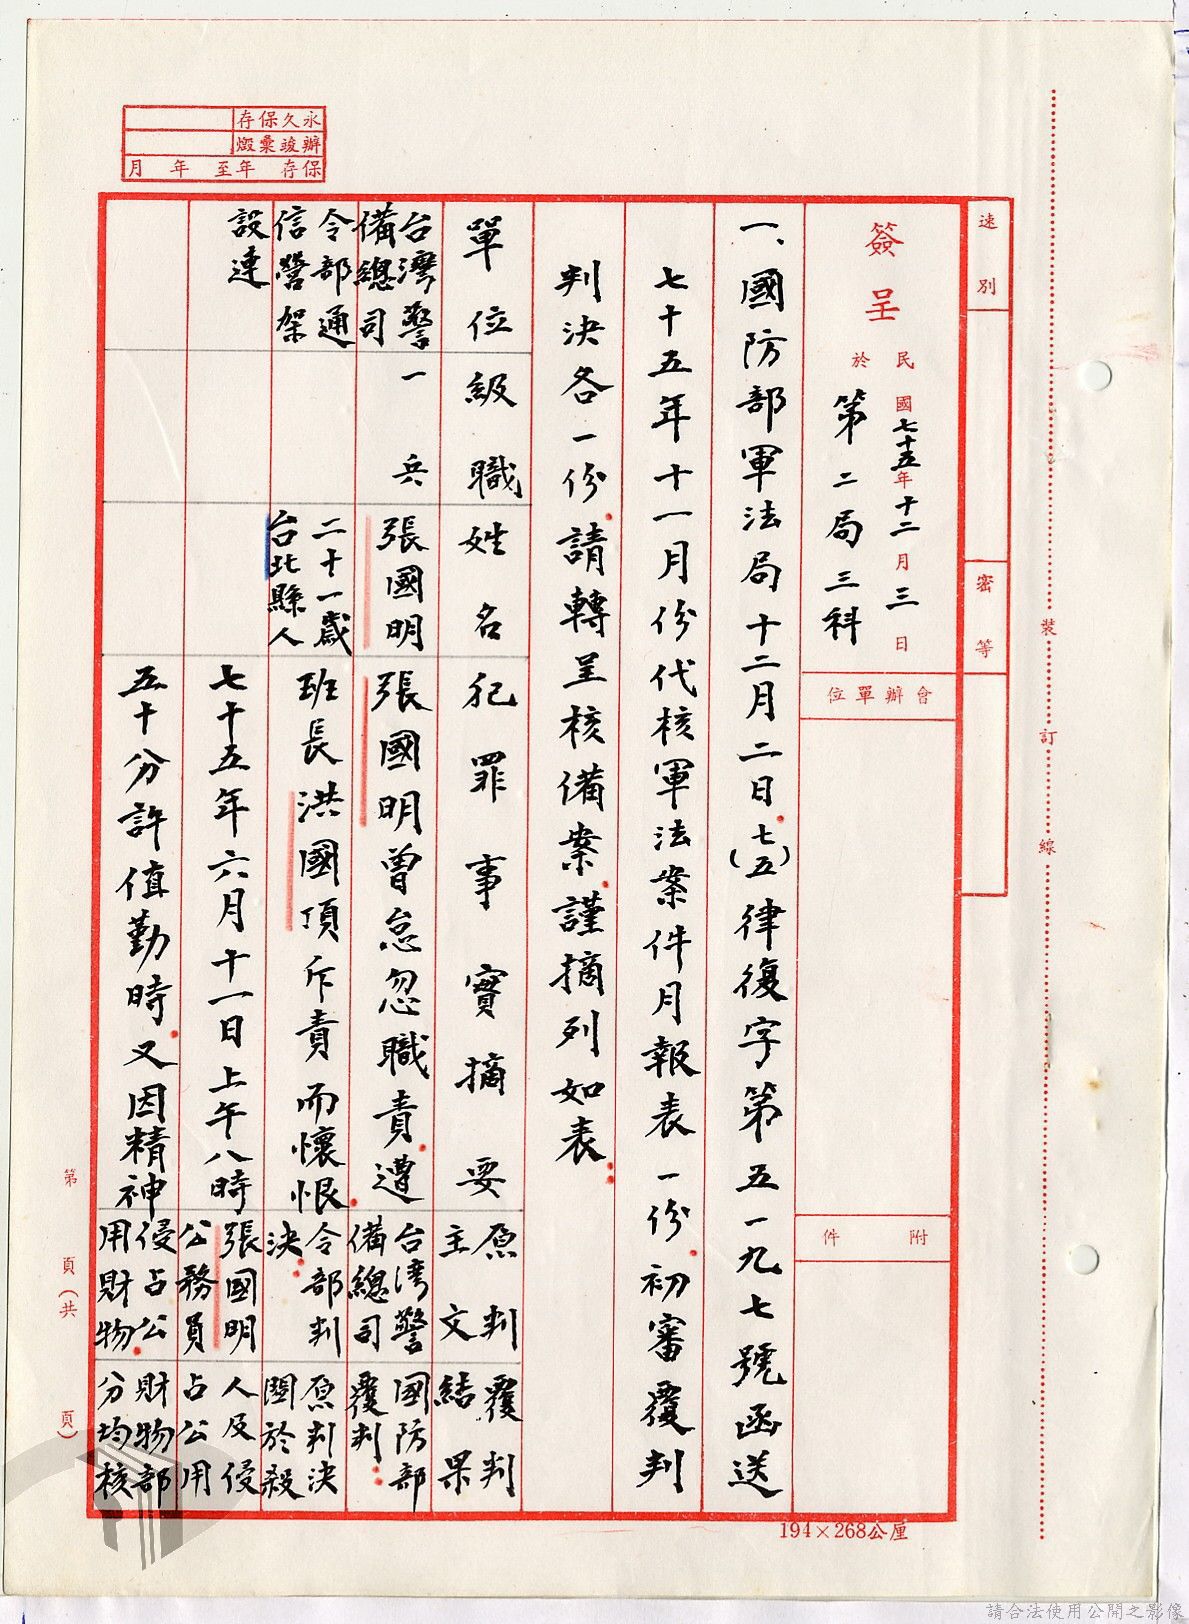 永久保存
辦竣彙燬
保存 年至 年 月
速別
密等
簽呈
民國七十五年十二月三日
於第二局三科
會辦單位
附件
一、國防部軍法局十二月二日(七五)律復字第五一九七號函送
七十五年十一月份代核軍法案件月報表一份初審覆判
判決各一份請轉呈核備案謹摘列如表
單位
級職
姓名
犯罪事實摘要
原判主文
覆判結果
台灣警
備總司
令部通
信營架
設連
一兵
張國明
二十一歲
台北縣人
張國明曾怠忽職責遭
班長洪國頂斥責而懷恨
七十五年六月十一日上午八時
五十分許值勤時又因精神
台灣警
備總司
令部判
決:
張國明
公務員
侵占公
用財物
國防部
覆判:
原判決
關於殺
人及侵
占公用
財物部
分均核
裝
訂
線
第 頁(共 頁)
194×268公厘
請合法使用公開之影像